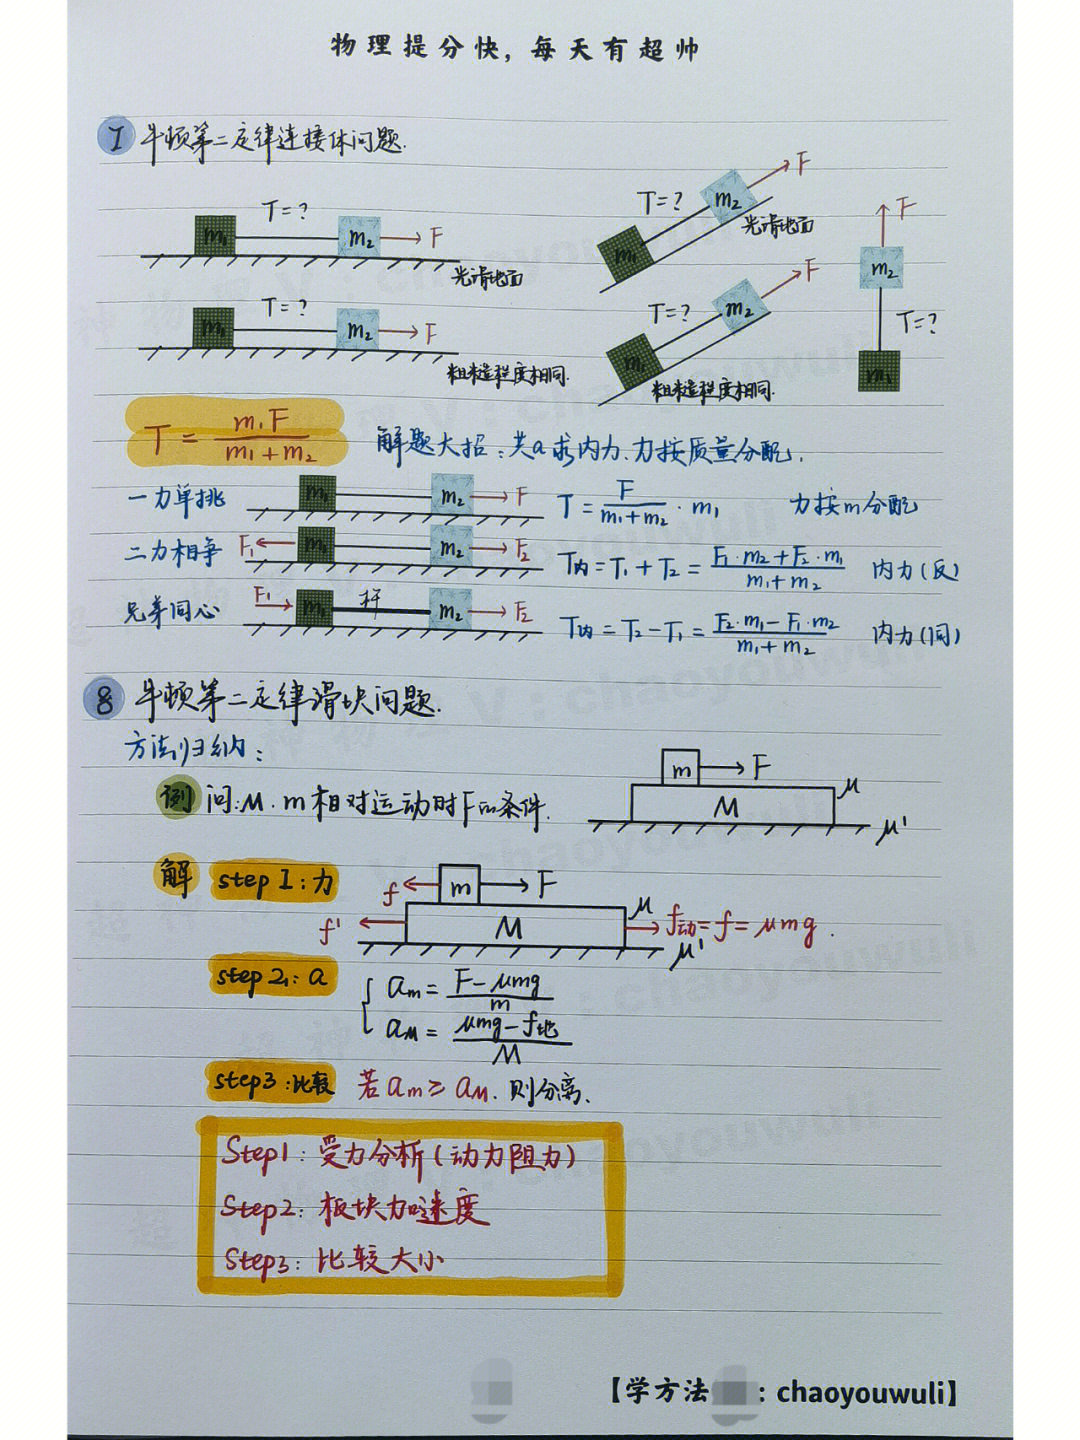 物理提分快，每天有超帅
7 牛顿第二定律连接体问题.
T=? m₁ m₂ F 光滑地面
T=? m₁ m₂ F 粗糙程度相同.
T=? m₁ m₂ F 光滑地面
T=? m₁ m₂ F 粗糙程度相同.
F m₂ T=? m₁
T = m₁F/(m₁+m₂) 解题大招：共a求内力、力按质量分配.
一力单挑 m₁ m₂ F T = F/(m₁+m₂) · m₁ 力按m分配
二力相争 F₁ m₁ m₂ F₂ T内 = T₁ + T₂ = (F₁·m₂+F₂·m₁)/(m₁+m₂) 内力(反)
兄弟同心 F₁ m₁ 杆 m₂ F₂ T内 = T₂ - T₁ = (F₂·m₁-F₁·m₂)/(m₁+m₂) 内力(同)
8 牛顿第二定律滑块问题.
方法归纳：
例 问：M.m相对运动时F的条件.
m F M μ μ'
解 step 1：力
f m F f' M μ μ' f动=f=μmg.
step 2：a
am = (F-μmg)/m
aM = (μmg-f地)/M
step3：比较 若am≥aM.则分离.
Step1：受力分析(动力阻力)
Step2：板块加速度
Step3：比较大小
【学方法 ：chaoyouwuli】